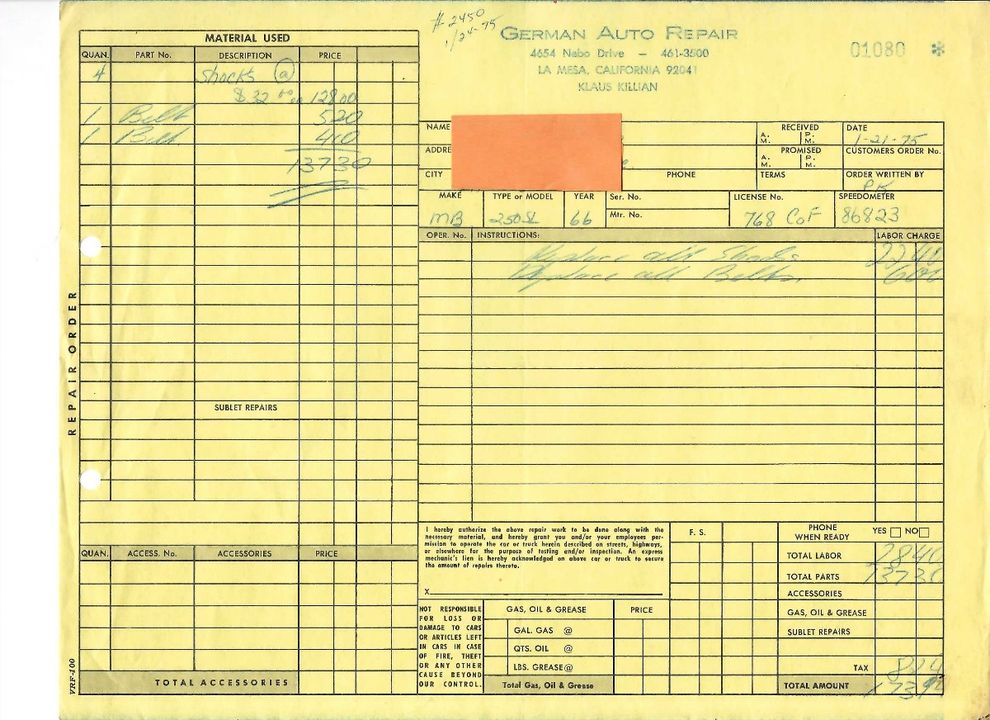 # 2450
1/24-75
GERMAN AUTO REPAIR
4654 Nebo Drive — 461-3500
LA MESA, CALIFORNIA 92041
KLAUS KILLIAN
01080 *
MATERIAL USED
QUAN. PART No. DESCRIPTION PRICE
4 Shocks @
$32 00 128 00
1 Belt 5 20
1 Belt 4 10
137 30
SUBLET REPAIRS
REPAIR ORDER
QUAN. ACCESS. No. ACCESSORIES PRICE
TOTAL ACCESSORIES
VRF-400
NAME
ADDRE
CITY PHONE
RECEIVED
A. M. P. M.
PROMISED
A. M. P. M.
TERMS
DATE
1-21-75
CUSTOMERS ORDER No.
ORDER WRITTEN BY
MAKE TYPE or MODEL YEAR Ser. No. LICENSE No. SPEEDOMETER
Mtr. No.
MB 250SL 66 768 COF 86823
OPER. No. INSTRUCTIONS: LABOR CHARGE
Replace all Shocks 22 40
Replace all Belts 6 00
I hereby authorize the above repair work to be done along with the
necessary material, and hereby grant you and/or your employees per-
mission to operate the car or truck herein described on streets, highways,
or elsewhere for the purpose of testing and/or inspection. An express
mechanic's lien is hereby acknowledged on above car or truck to secure
the amount of repairs thereto.
X
NOT RESPONSIBLE
FOR LOSS OR
DAMAGE TO CARS
OR ARTICLES LEFT
IN CARS IN CASE
OF FIRE, THEFT
OR ANY OTHER
CAUSE BEYOND
OUR CONTROL.
GAS, OIL & GREASE PRICE
GAL. GAS @
QTS. OIL @
LBS. GREASE @
Total Gas, Oil & Grease
F. S.
PHONE WHEN READY YES NO
TOTAL LABOR 28 40
TOTAL PARTS 137 30
ACCESSORIES
GAS, OIL & GREASE
SUBLET REPAIRS
TAX 8 24
TOTAL AMOUNT 173.94